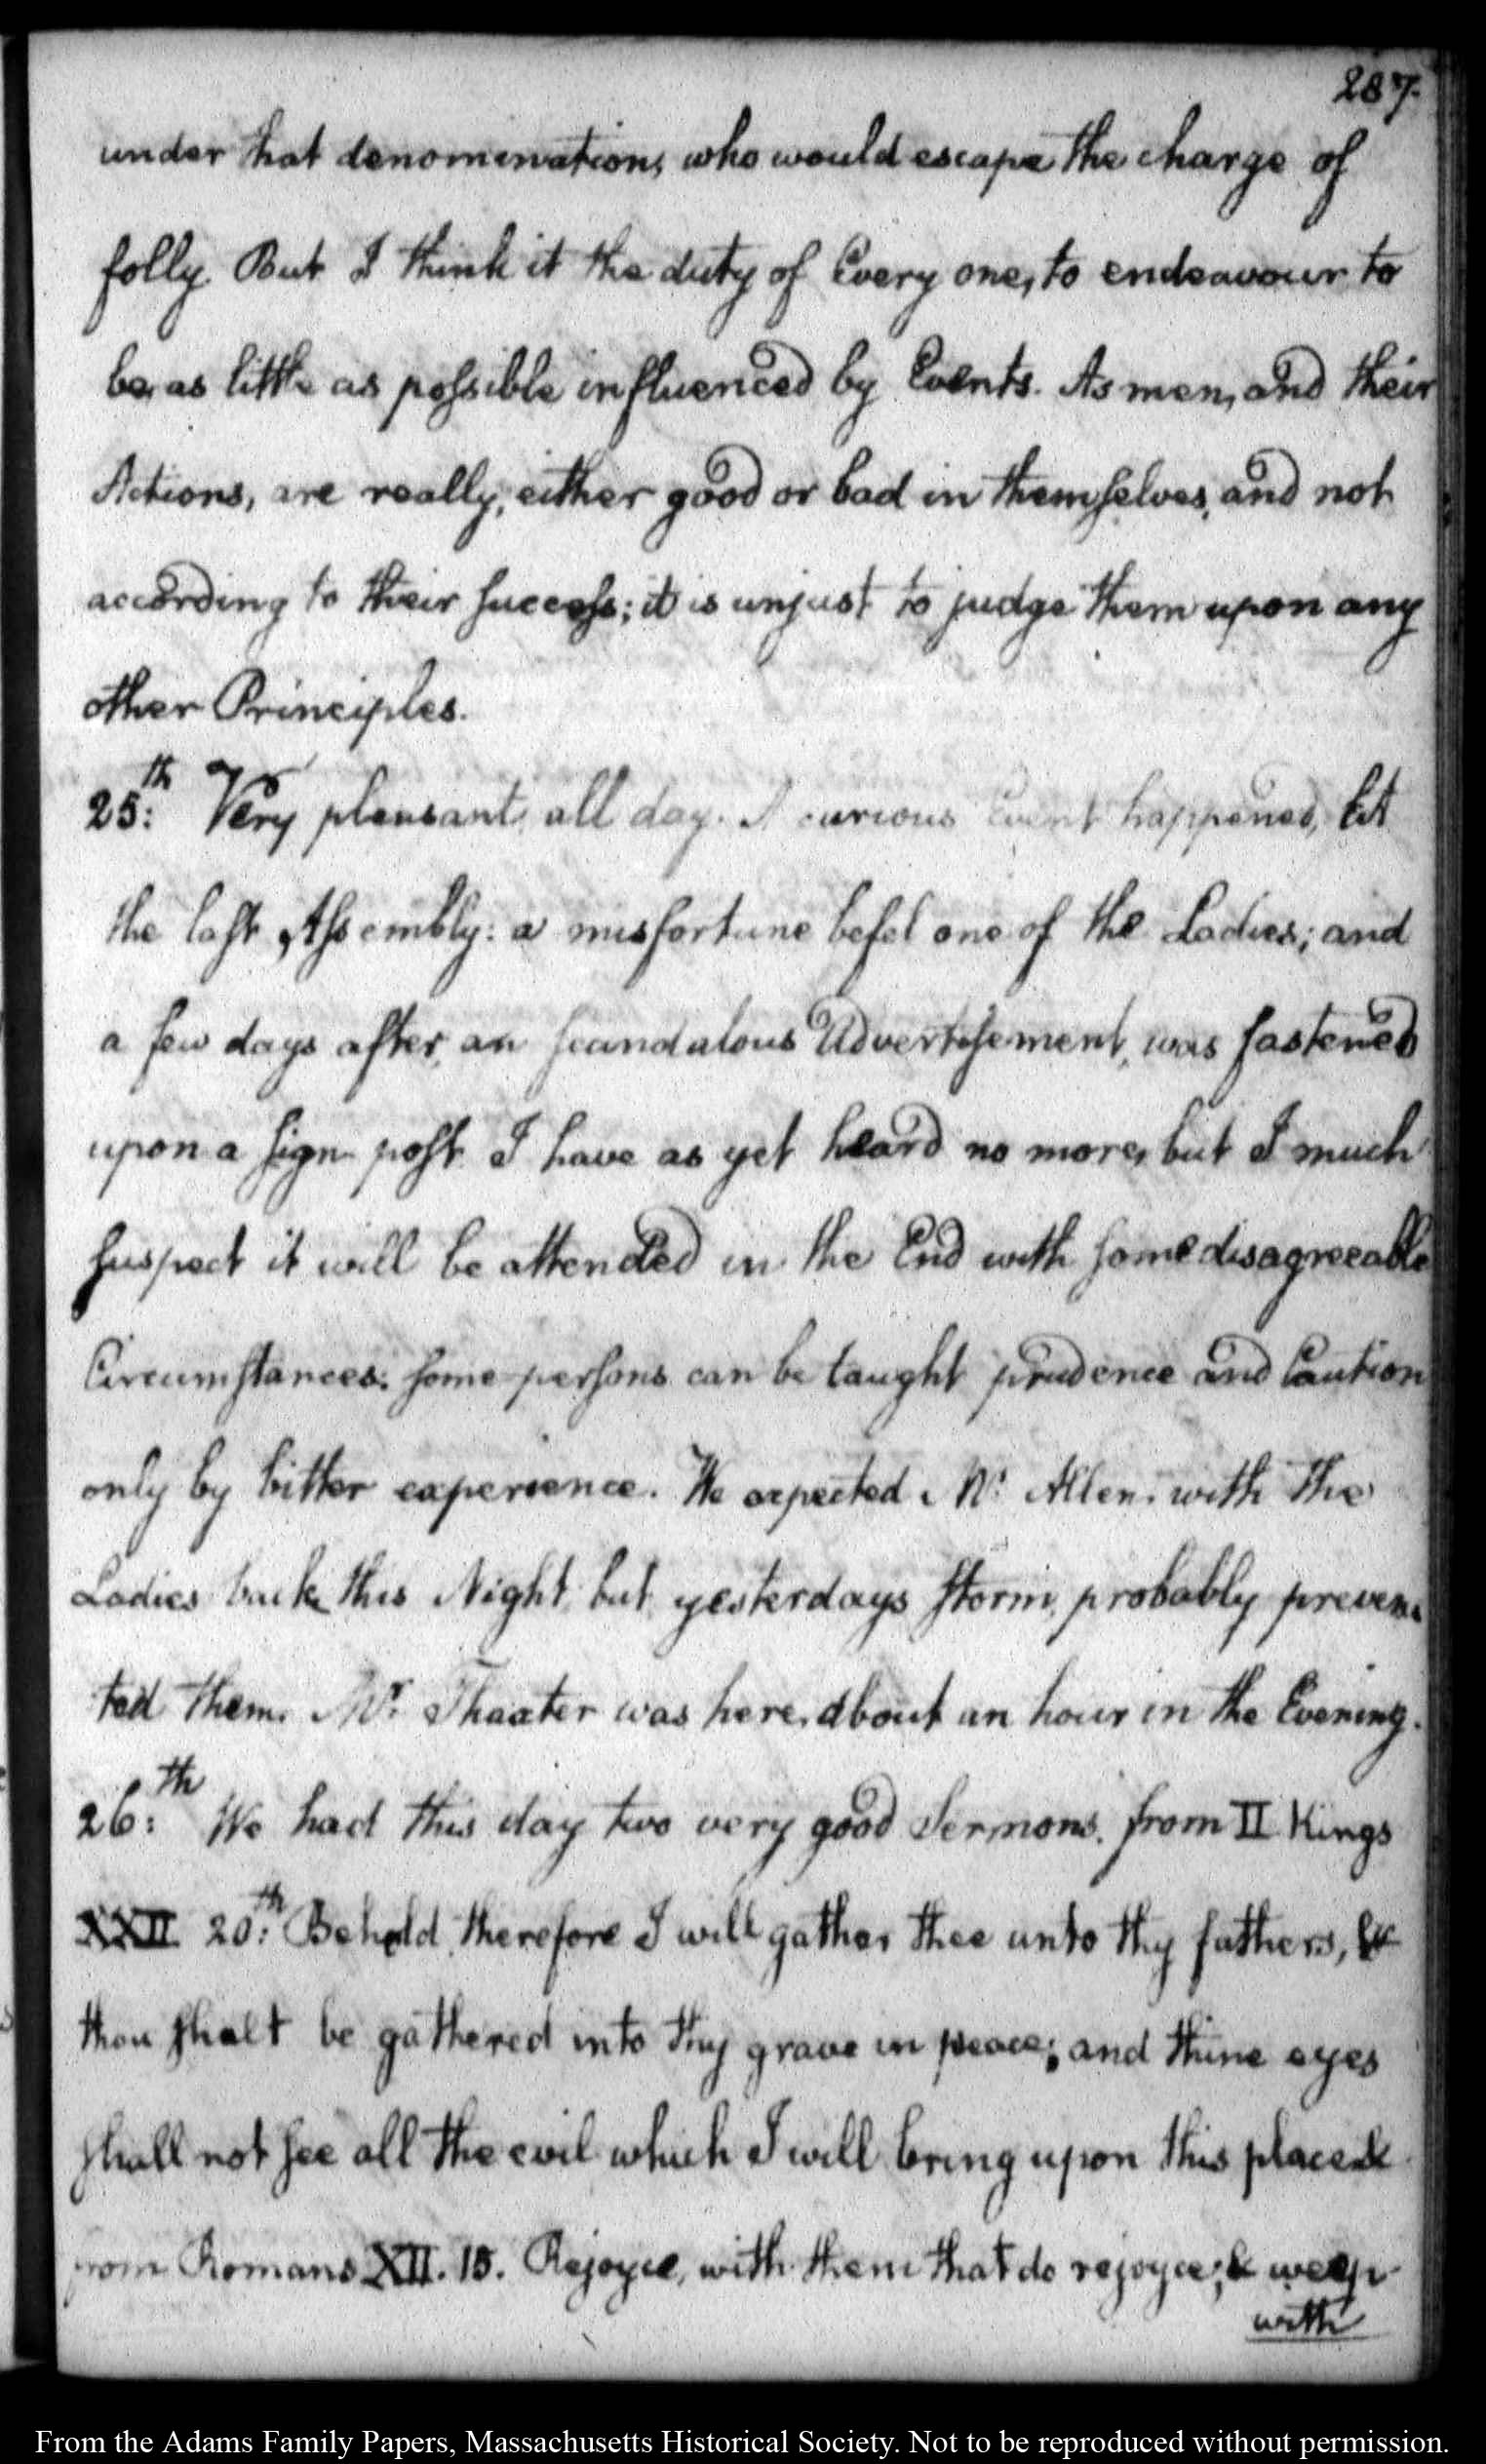 287.
under that denomination, who would escape the charge of
folly. But I think it the duty of Every one, to endeavour to
be, as little as possible influenced by Events. As men, and their
Actions, are really, either good or bad in themselves, and not
according to their success; it is unjust to judge them upon any
other Principles.
25:th Very pleasant, all day. A curious Event happened, at
the last Assembly: a misfortune befel one of the Ladies; and
a few days after, an scandalous Advertisement, was fastened
upon a sign post. I have as yet heard no more, but I much
suspect it will be attended in the End with some disagreeable
Circumstances: some persons can be taught prudence and Caution
only by bitter experience. We expected Mr. Allen, with the
Ladies back this Night, but yesterdays storm, probably preven-
ted them. Mr. Thaxter was here, about an hour in the Evening.
26:th We had this day two very good Sermons. from II Kings
XXII 20:th Behold, therefore I will gather thee unto thy fathers, &
thou shalt be gathered into thy grave in peace; and thine eyes
shall not see all the evil which I will bring upon this place &
from Romans XII. 15. Rejoyce, with them that do rejoyce; & weep
with
From the Adams Family Papers, Massachusetts Historical Society. Not to be reproduced without permission.